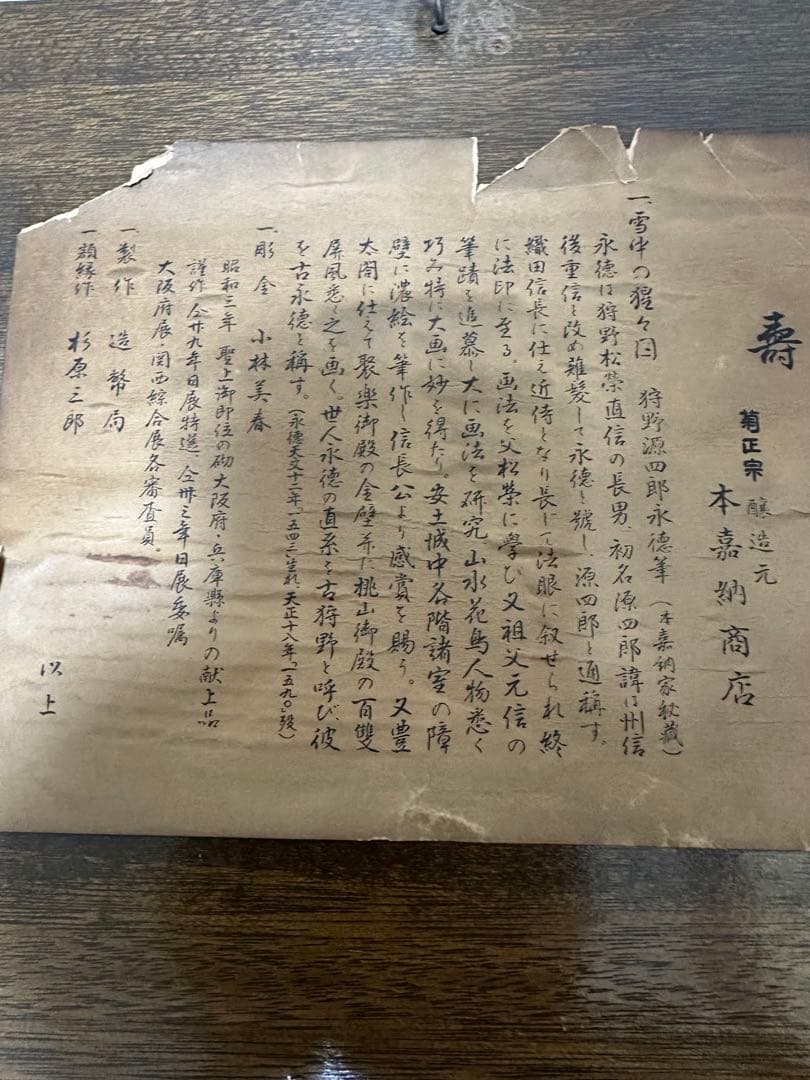 壽
菊正宗 醸造元
本嘉納商店
一、雪中の猩々図 狩野源四郎永徳筆 (本嘉納家秘蔵)
永徳は狩野松榮直信の長男、初名源四郎諱は州信
後重信と改め薙髪して永徳と號し、源四郎と通稱す。
織田信長に仕え近侍となり長じて法眼に叙せられ終
に法印に至る。画法を父松榮に學び又祖父元信の
筆蹟を追慕し大に画法を研究、山水花鳥人物悉く
巧み特に大画に妙を得たり。安土城中各階諸室の障
壁に濃絵を筆作し信長公より感賞を賜う。又豊
太閤に仕えて聚楽御殿の金壁并た桃山御殿の百雙
屏風悉く之を画く。世人永徳の直系を古狩野と呼び、彼
を古永徳と稱す。(永徳天文十二年、一五四三生れ、天正十八年、一五九〇歿)
一、彫金 小林美春
昭和三年 聖上御即位の砌大阪府・兵庫縣よりの献上品
謹作 仝廿九年日展特選、仝卅三年日展委嘱
大阪府展・関西綜合展各審査員。
一、製作 造幣局
一、額縁作 杉原三郎
以上